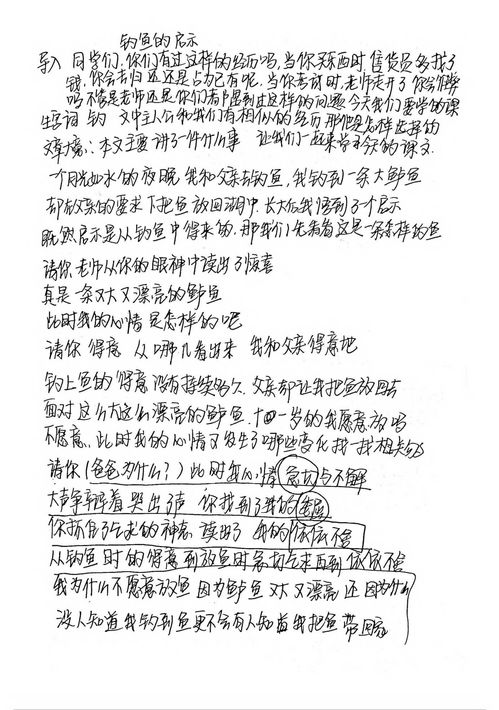 钓鱼的启示
导入 同学们,你们有过这样的经历吗,当你买东西时售货员多找了
钱,你会去归还还是占为己有呢,当你考试时,老师走开了你会作弊
吗不管是老师还是你们都遇到过这样的问题今天我们要学的课
生字词 钓 文中主人公和我们有相似的经历那他是怎样选择的
文章大意:本文主要讲了一件什么事 让我们一起来学习今天的课文.
一个月光如水的夜晚 我和父亲去钓鱼,我钓到一条大鲈鱼
却在父亲的要求下把鱼放回湖中.长大后我悟到了个启示
既然启示是从钓鱼中得来的,那我们先来看看这是一条怎样的鱼
请你 老师从你的眼神中读出了惊喜
真是一条又大又漂亮的鲈鱼
此时我的心情是怎样的呢
请你 得意 从哪儿看出来 我和父亲得意地
钓上鱼的得意没有持续多久.父亲却让我把鱼放回去
面对这么大这么漂亮的鲈鱼.十一岁的我愿意放吗
不愿意、此时我的心情又发生了哪些变化找一找相关句
请你(爸爸为什么?)此时我心情 急切与不解
大声争辩着哭出了声 你找到了我的委屈
你抓住了乞求的神态 读出了 我的依依不舍
从钓鱼时的得意到放鱼时急切乞求再到依依不舍
我为什么不愿意放鱼 因为鲈鱼又大又漂亮 还因为什么
没人知道我钓到鱼更不会有人知道我把鱼带回家